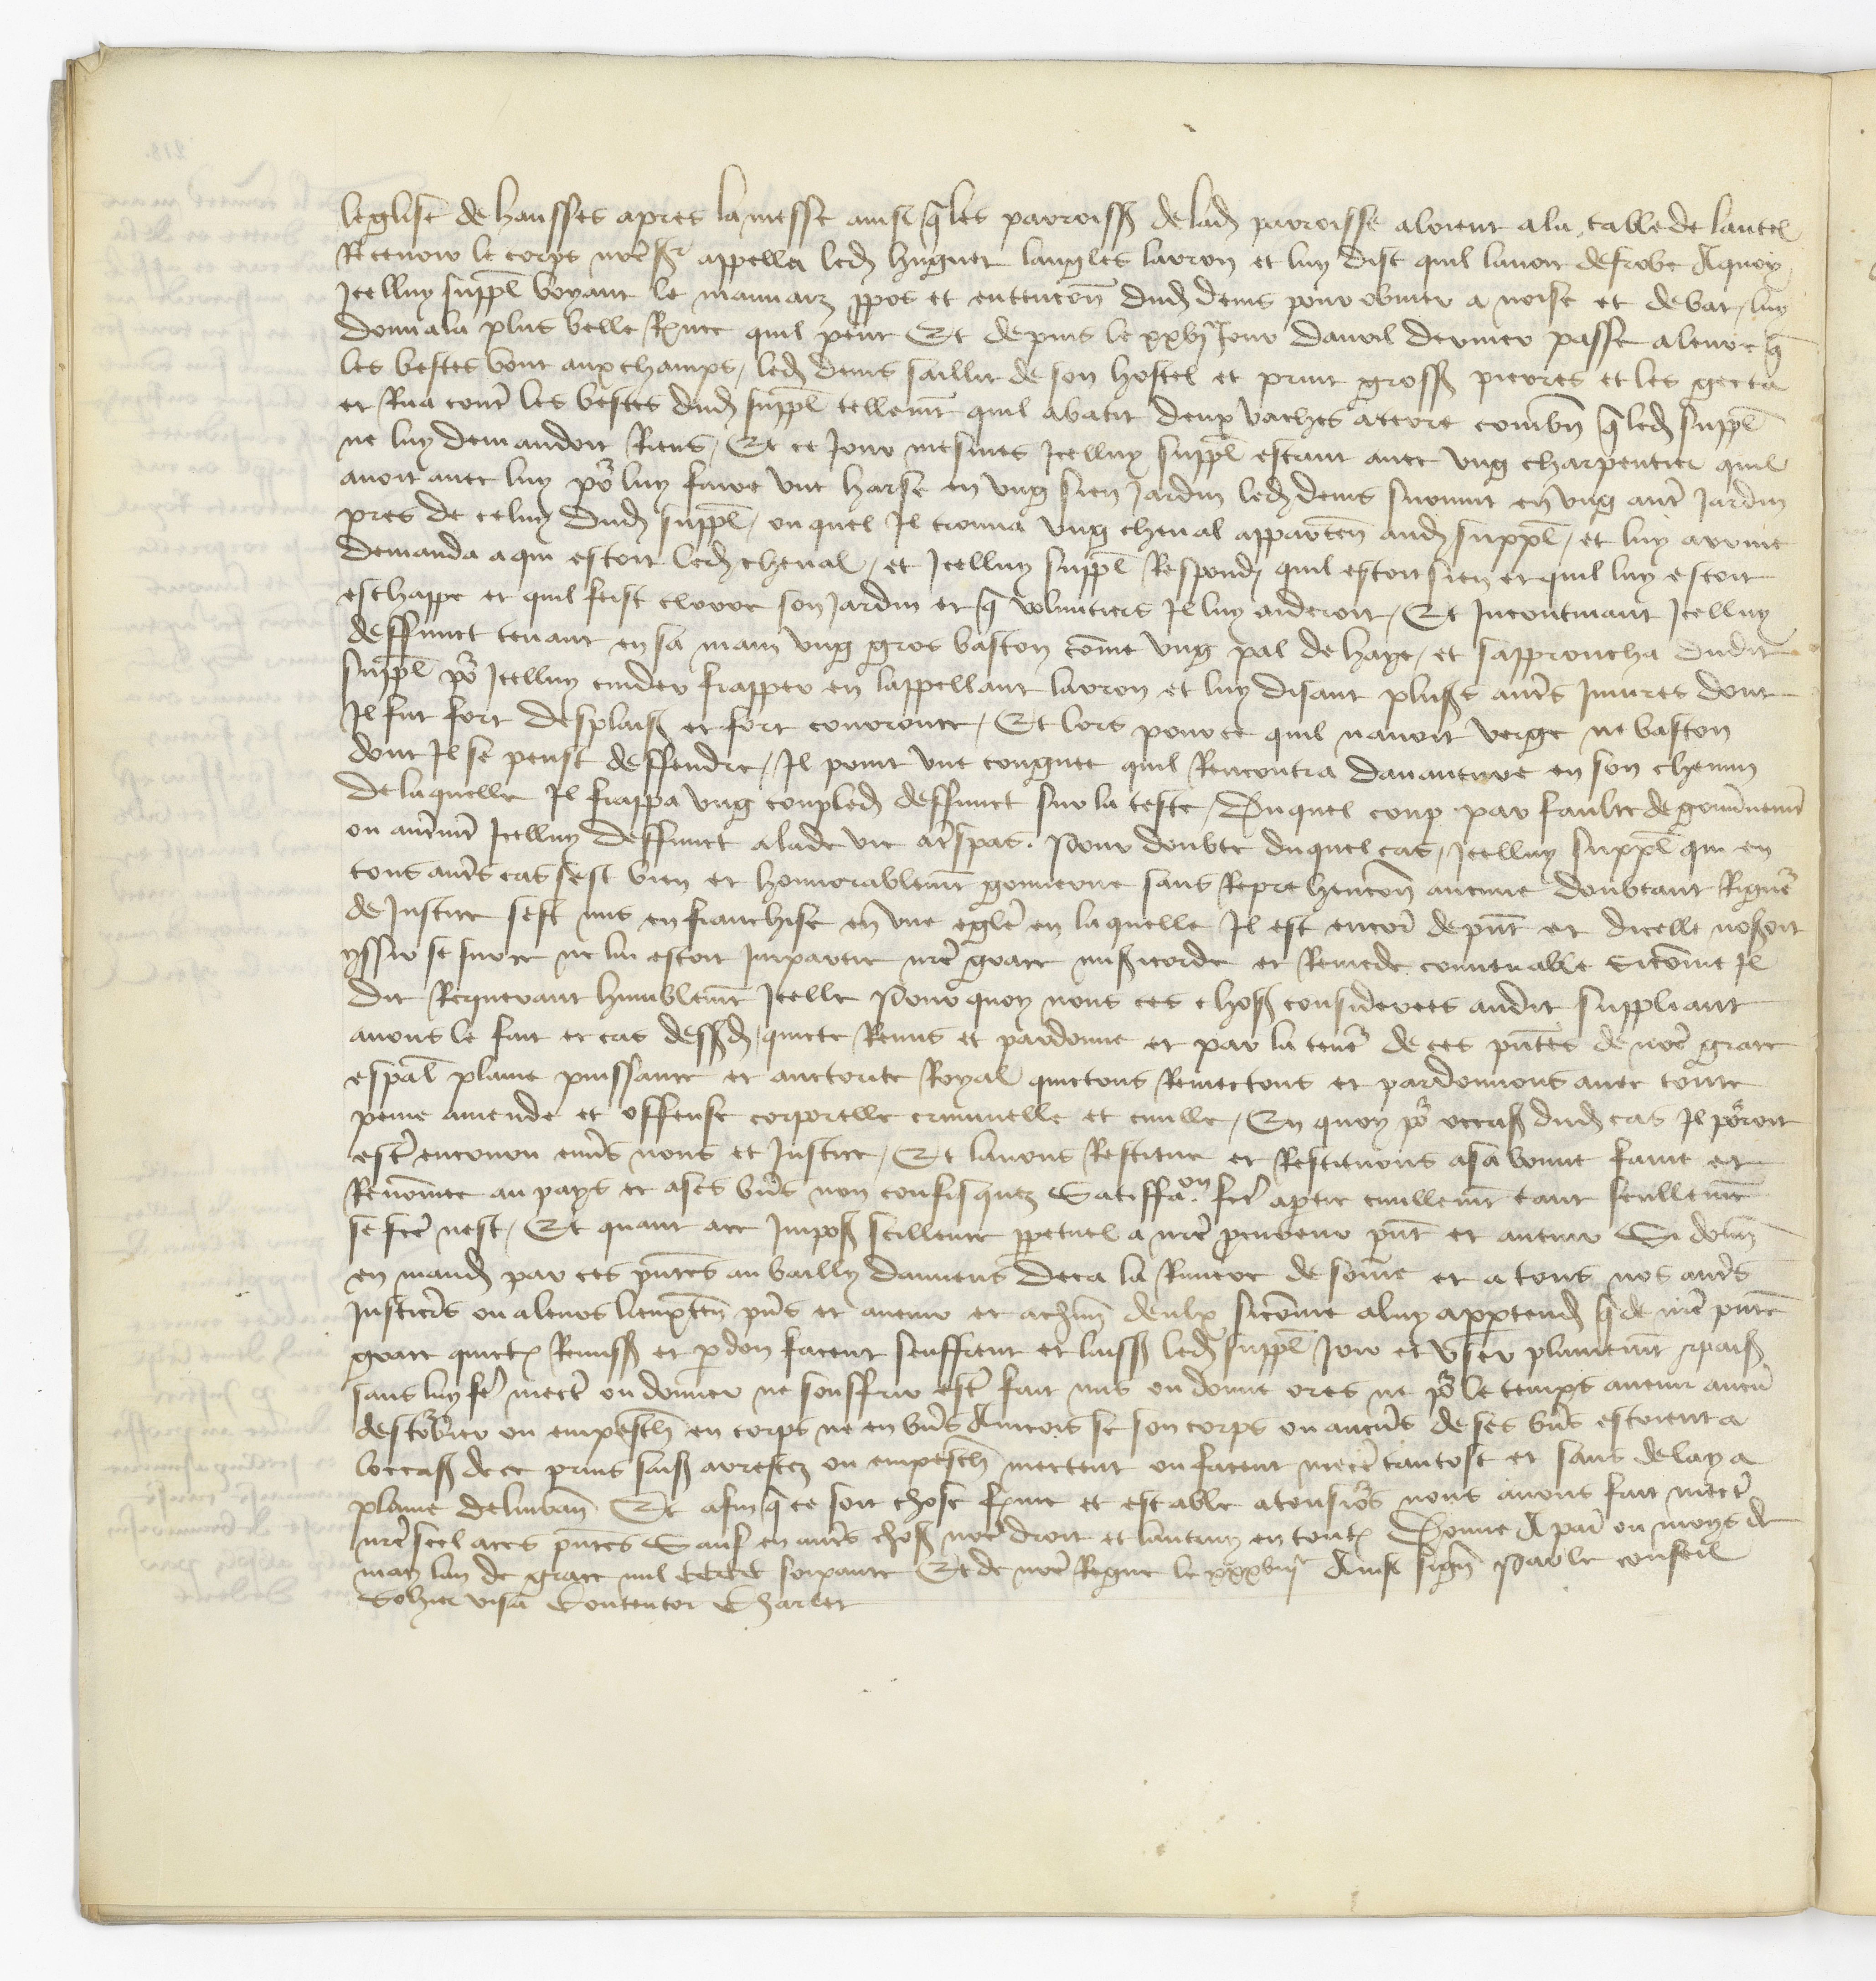 leglise de hausses apres la messe ainsi q̃ les parroiss̃ de lad parroisse aloient a la table de lautel
Recevoir le corps nr̃e sr̃ appella led huguet langles larron et luy dist quil lavoit desrobe A quoy
Icelluy suppl̃ voyant le mauvaiz ppos et entencoñ dud denis pour obvier a noise et debat / luy
donna la plus belle Rñce quil peut Et depuis le xxvjᵉ jour davril dernier passe a leure q̃
les bestes vont aux champs / led denis saillit de son hostel et print gross̃ pierres et les gecta
et Rua contr̃ les bestes dud suppl̃ tellemt̃ quil abatit deux vaches a terre combñ q̃ led suppl̃
ne luy demandoit Riens / Et ce jour mesmes Icelluy suppl̃ estant avec ung charpentier quil
avoit avec luy po͛ luy faire une harse en ung sien Jardin led denis survint en ung aut̃ Jardin
pres de celuy dud suppl̃ / ouquel Il trouva ung cheval apparteñ aud suppl̃ / et luy arrive
demanda a qui estoit led cheval / et Icelluy suppl̃ Respond quil estoit sien et quil luy estoit
eschappe et quil feist clorre son Jardin et q̃ voluntiers Il luy aideroit / Et Incontinant Icelluy
deffunct tenant en sa main ung gros baston com̃e ung pal de haye / et sapproucha dudit
suppl̃ po͛ Icelluy cuider frapper en lappellant larron et luy disant plus͛s autr̃s Injures dont
Il fut fort desplais̃ et fort courouce / Et lors pource quil navoit verge ne baston
dont Il se peust deffendre / Il print une congnee quil Rencontra davanture en son chemin
de laquelle Il frappa ung coup led deffunct sur la teste / Duquel coup par faulte de gouv̾nemt̃
ou autremt̃ Icelluy deffunct ala de vie a trespas. Pour doubte duquel cas / Icelluy suppl̃ qui en
tous autr̃s cas sest bien et honnorablemt̃ gouverne sans Reprehencoñ aucune doubtant Rigue͛
de Justice sest mis en franchise en une egl̃e en laquelle Il est encor̃ de pñt et dicelle noseroit
yssir se sur ce ne lui estoit Impartie nr̃e grace misericorde et Remede convenable Sicom̃e Il
dit Requerant humblemt̃ Icelle Pourquoy nous ces chos̃ considerees audit suppliant
avons le fait et cas dess̃d / quicte Remis et pardonne et par la tene͛ de ces pñtes de nr̃e grace
esp̃al plaine puissance et auctorite Royal quictons Remectons et pardonnons avec toute
peine amende et offense corporelle criminelle et civille / En quoy po͛ occas̃ dud cas Il po͛roit
estr̃ encouru env̾s nous et Justice / Et lavons Restitue et Restituons a sa bonne fame et
Renom̃ee au pays et a ses bñs non confisquez Satiffaon̄ fc̃e a partie civillemt̃ tant seullemt̃
se fc̃e nest / Et quant a ce Imposᵗ scillence ppetuel a nr̃e procureur pñt et avenir Si donñ
en mand par ces pñtes au bailly damiens deca la Riviere de som̃e et a tous nos autr̃s
Justicie͛s ou a leurs lieuxteñ pñs et avenir et a chũn deulx sicom̃e a luy apptend q̃ de nr̃e pñte
grace quictᵃ Remiss̃ et p̱don facent seuffrent et laiss̃ led suppl̃ Joir et user plainemt̃ et paisᵗ
sans luy fẽ mectr̃ ou donner ne souffrir estr̃ fait mis ou donne ores ne po͛ le temps avenir aucũ
desto͛bier ou empesch̃ en corps ne en bñs Aincois se son corps ou aucũs de ses bñs estoient a
loccas̃ de ce prins sais̃ arrestez ou empesch̃ mectent ou facent mectr̃ tantost et sans delay a
plaine delivran̄ Et afin q̃ ce soit chose ferme et estable a tousjo͛s nous avons fait mectr̃
nr̃e seel a ces pñtes Sauf en autr̃s chos̃ nr̃e droit et lautruy en toutᵉ Donne A par̃ ou moys de
may lan de grace mil cccc soixante Et de nr̃e Regne le xxxviijᵉ Ainsi signe Par le conseil
Sohier visa Contentor Charles